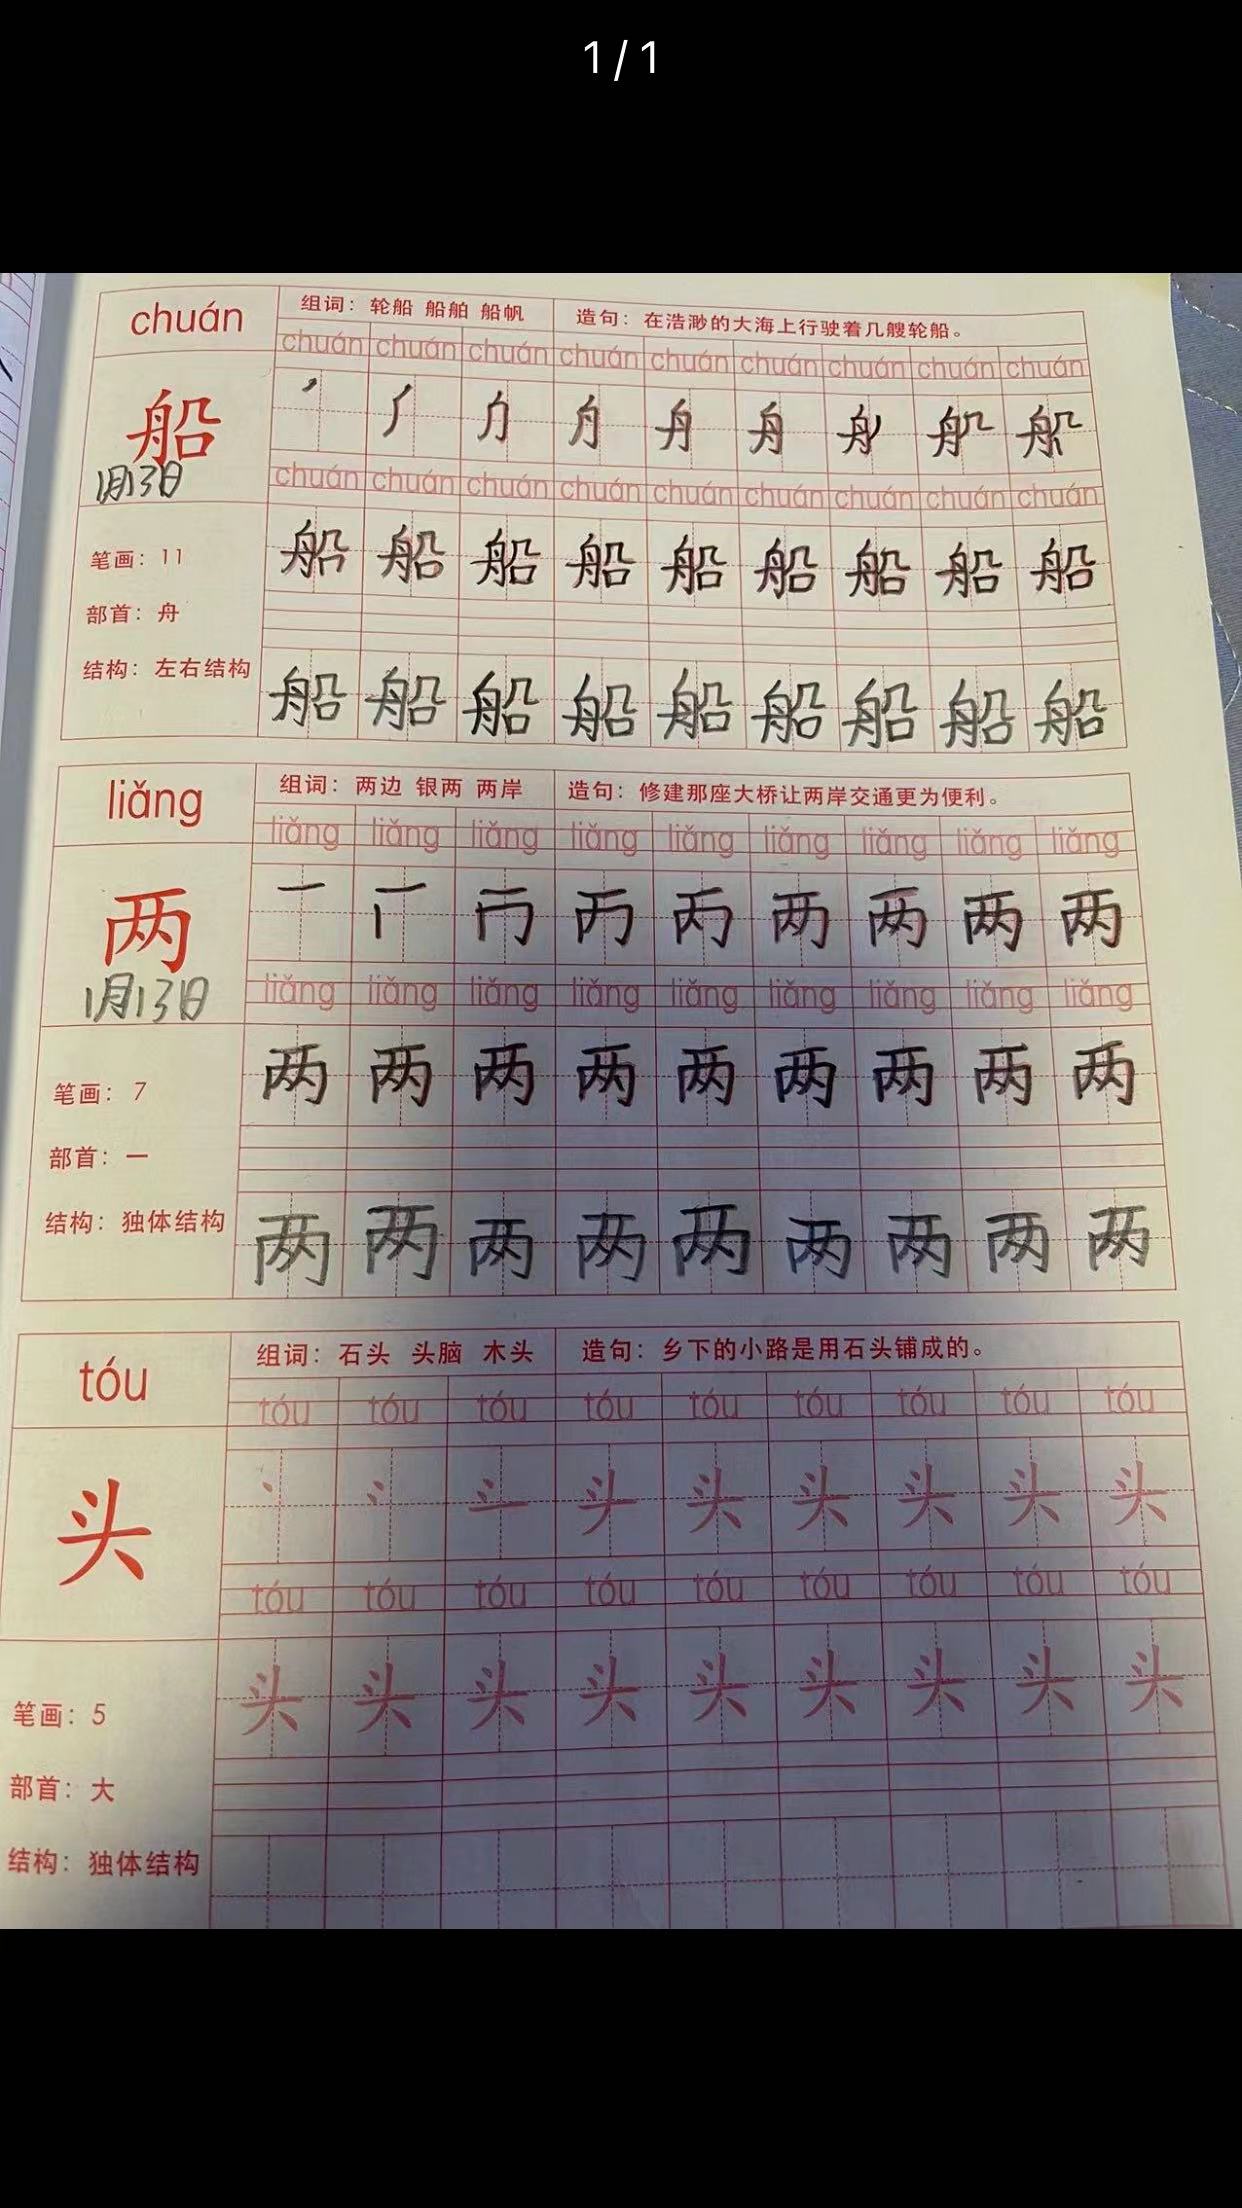 1/1
chuán 组词：轮船 船舶 船帆 造句：在浩渺的大海上行驶着几艘轮船。
chuán chuán chuán chuán chuán chuán chuán chuán chuán
船
1月13日
chuán chuán chuán chuán chuán chuán chuán chuán chuán
笔画：11
船 船 船 船 船 船 船 船 船
部首：舟
结构：左右结构
船 船 船 船 船 船 船 船 船
liǎng 组词：两边 银两 两岸 造句：修建那座大桥让两岸交通更为便利。
liǎng liǎng liǎng liǎng liǎng liǎng liǎng liǎng liǎng
两 一 两 两 两 两
1月13日
liǎng liǎng liǎng liǎng liǎng liǎng liǎng liǎng liǎng
两 两 两 两 两 两 两 两 两
笔画：7
部首：一
结构：独体结构
两 两 两 两 两 两 两 两 两
tóu 组词：石头 头脑 木头 造句：乡下的小路是用石头铺成的。
tóu tóu tóu tóu tóu tóu tóu tóu tóu
头 头 头 头 头 头
tóu tóu tóu tóu tóu tóu tóu tóu tóu
头 头 头 头 头 头 头 头 头
笔画：5
部首：大
结构：独体结构